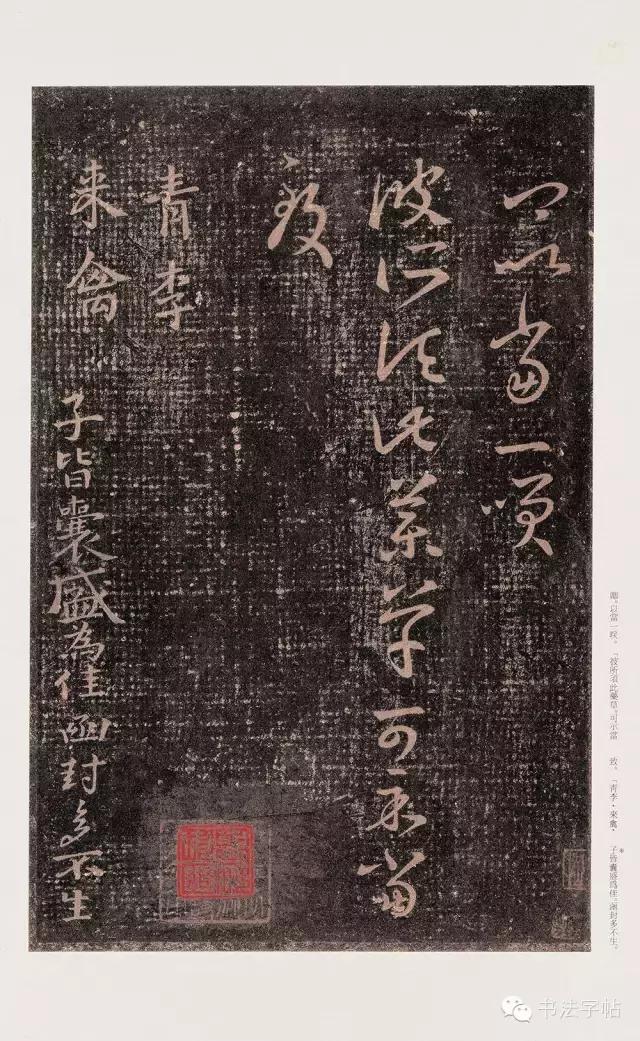 以當一笑
彼所須此藥草可示當
致
青李
来禽
子皆囊盛為佳函封多不生
耳以當一笑。「彼所須此藥草。可示當　致。「青李·來禽·　子皆囊盛爲佳。函封多不生。
书法字帖